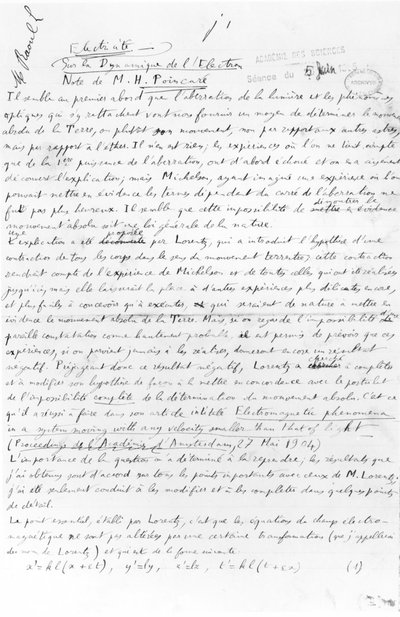 j 1
M. Raoul
Electricité.—
Sur la Dynamique de l'Electron
ACADÉMIE DES SCIENCES
Séance du 5 Juin
Note de M. H. Poincaré
Il semble au premier abord que l'aberration de la lumière et les phénomènes
optiques qui s'y rattachent vont nous fournir un moyen de déterminer le mouvement
absolu de la Terre, ou plutôt son mouvement, non par rapport aux autres astres,
mais par rapport à l'éther. Il n'en est rien; les expériences où l'on ne tient compte
que de la 1ère puissance de l'aberration, ont d'abord échoué et on en a aisément
découvert l'explication; mais Michelson, ayant imaginé une expérience où l'on
pouvait mettre en évidence les termes dépendant du carré de l'aberration ne
fut pas plus heureux. Il semble que cette impossibilité de démontrer le
mouvement absolu soit une loi générale de la nature.
Une explication a été proposée par Lorentz, qui a introduit l'hypothèse d'une
contraction de tous les corps dans le sens du mouvement terrestre; cette contraction
rendrait compte de l'expérience de Michelson et de toutes celles qui ont été réalisées
jusqu'ici, mais elle laisserait la place à d'autres expériences plus délicates encore,
et plus faciles à concevoir qu'à exécuter, qui seraient de nature à mettre en
évidence le mouvement absolu de la Terre. Mais, si on regarde l'impossibilité d'une
pareille constatation comme hautement probable, il est permis de prévoir que ces
expériences, si on parvient jamais à les réaliser, donneront encore un résultat
négatif. Lorentz a cherché à compléter
et à modifier son hypothèse de façon à la mettre en concordance avec le postulat
de l'impossibilité complète de la détermination du mouvement absolu. C'est ce
qu'il a réussi à faire dans son article intitulé Electromagnetic phenomena
in a system moving with any velocity smaller than that of light
(Proceedings de l'Académie d'Amsterdam, 27 Mai 1904)
L'importance de la question m'a déterminé à la reprendre; les résultats que
j'ai obtenus sont d'accord sur tous les points importants avec ceux de M. Lorentz;
j'ai été seulement conduit à les modifier et à les compléter dans quelques points
de détail.
Le point essentiel, établi par Lorentz, c'est que les équations du champ électro-
magnétique ne sont pas altérées par une certaine transformation (que j'appellerai
du nom de Lorentz) et qui est de la forme suivante:
x'=kl(x+εt), y'=ly, z'=lz, t'=kl(t+εx) (1)